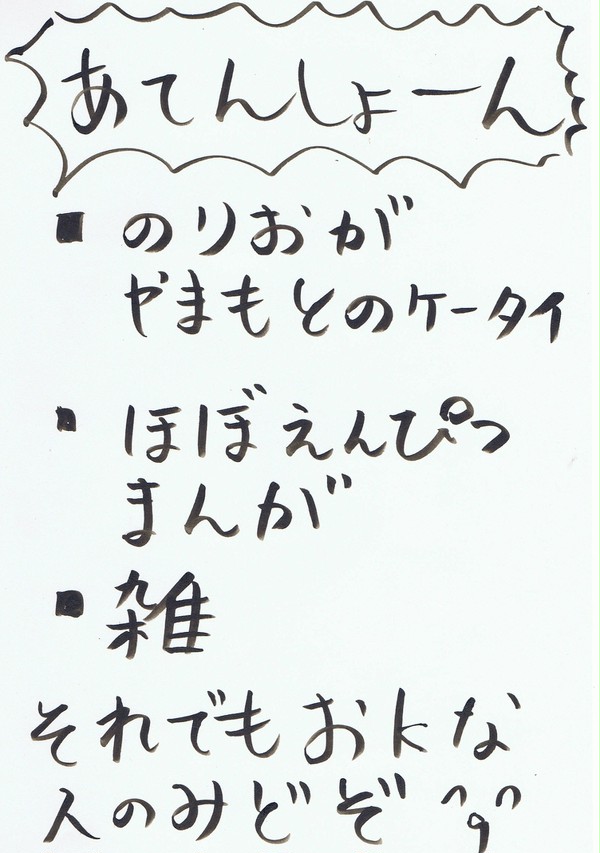 あてんしょーん
■ のりおが
やまもとのケータイ
■ ほぼえんぴつ
まんが
■ 雑
それでもおkな
人のみどぞ^q^